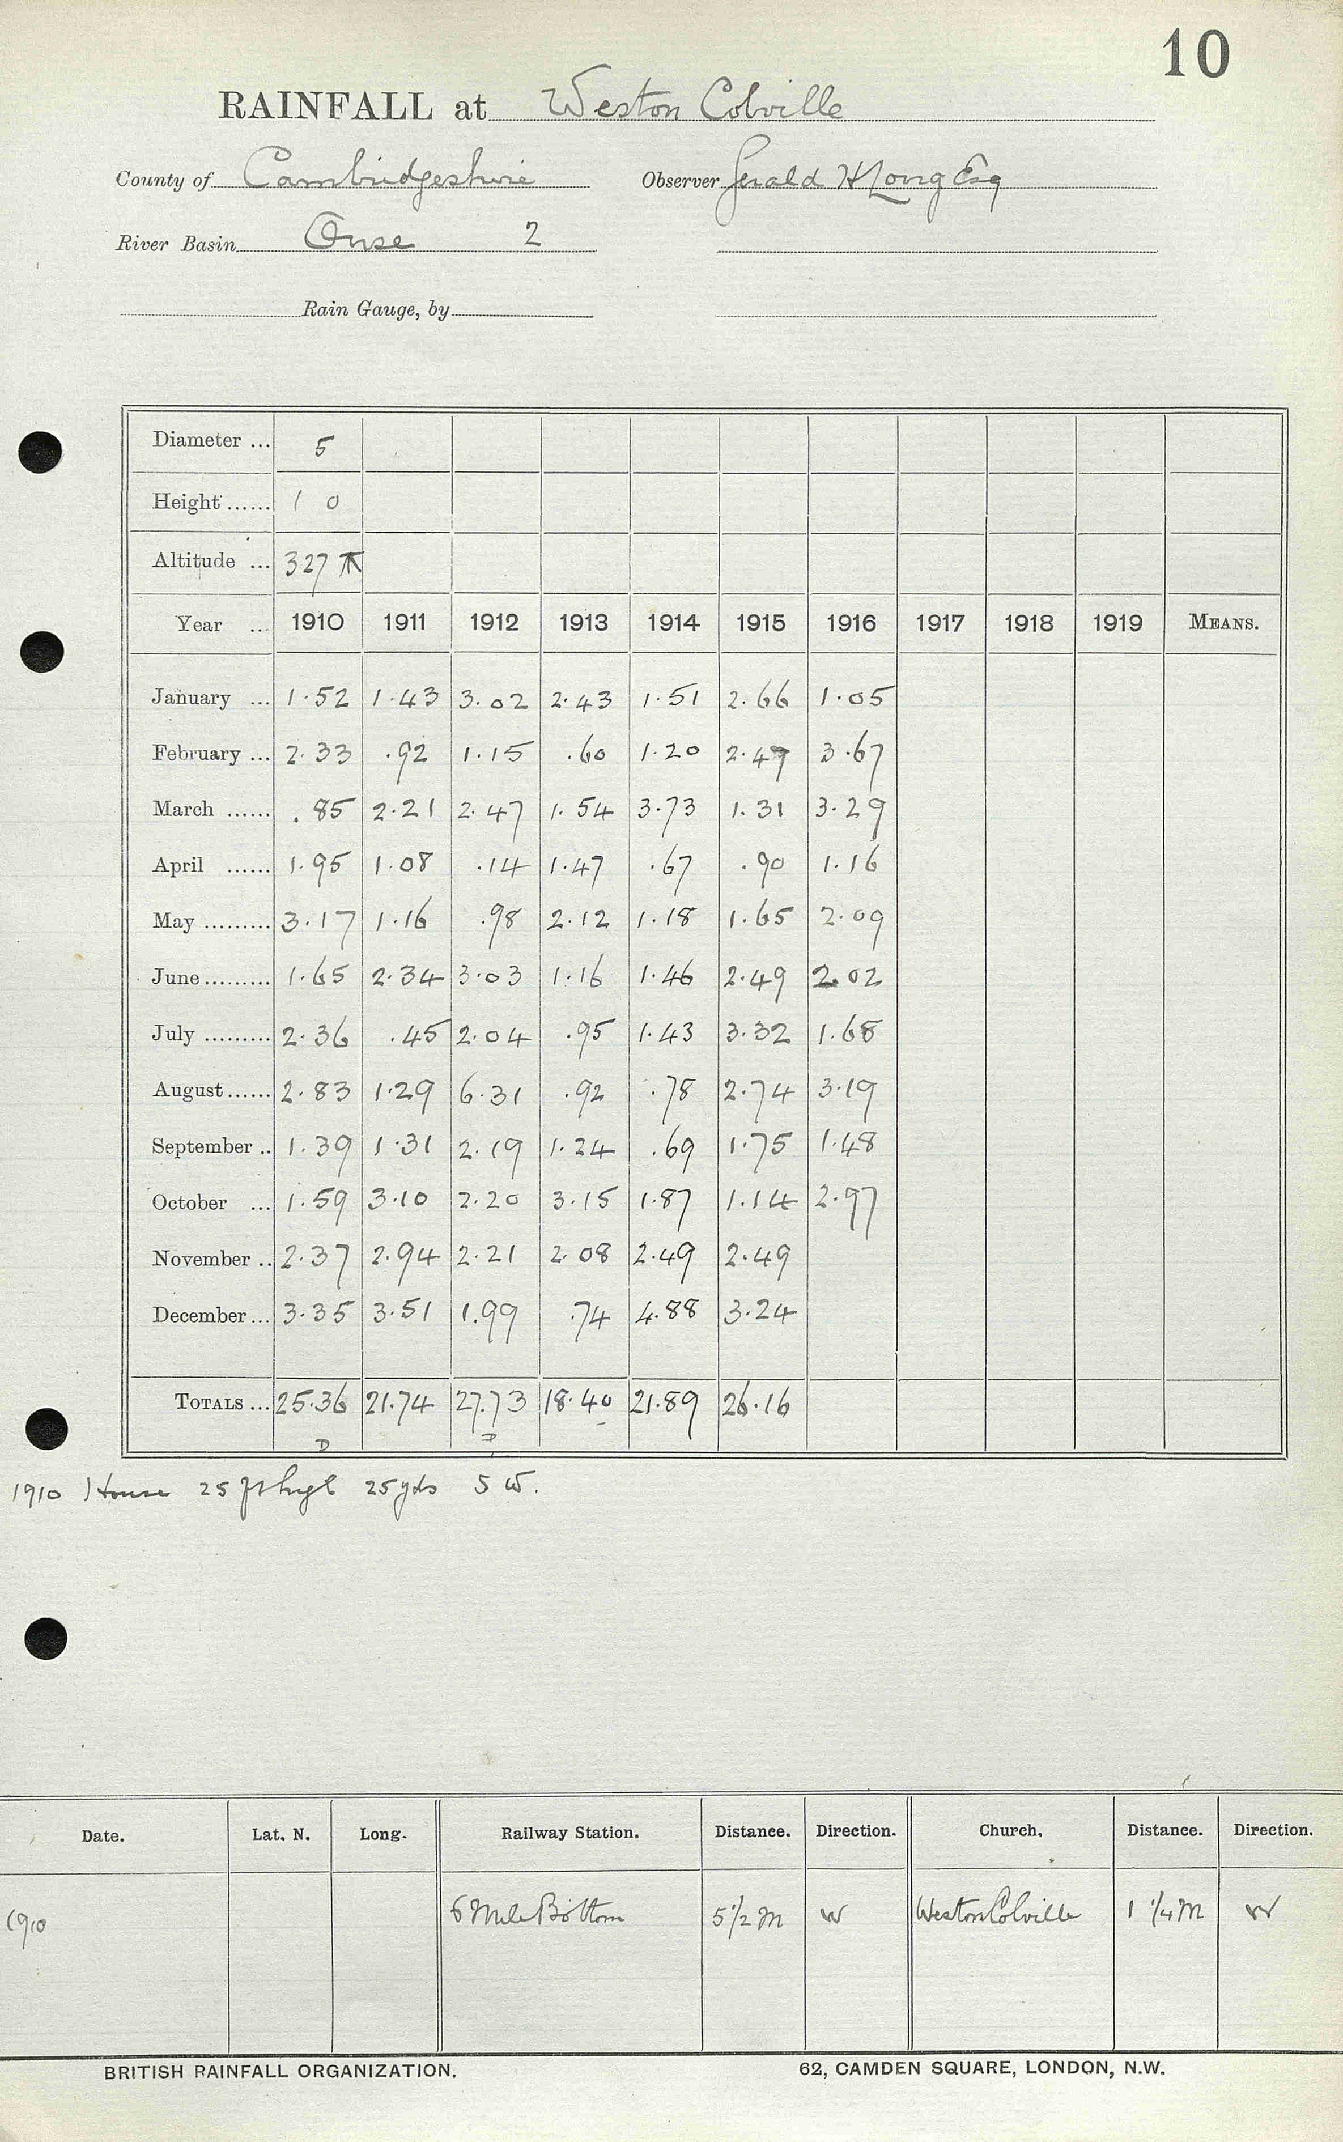 10
RAINFALL at Weston Colville
County of Cambridgeshire Observer Gerald H Long Esq
River Basin Ouse 2
Rain Gauge, by
Diameter ... 5
Height ...... 1 0
Altitude ... 327
Year ... 1910 1911 1912 1913 1914 1915 1916 1917 1918 1919 MEANS.
January ... 1.52 1.43 3.02 2.43 1.51 2.66 1.05
February ... 2.33 .92 1.15 .60 1.20 2.47 3.67
March ...... .85 2.21 2.47 1.54 3.73 1.31 3.29
April ...... 1.95 1.08 .14 1.47 .67 .90 1.16
May ......... 3.17 1.16 .98 2.12 1.18 1.65 2.09
June ......... 1.65 2.34 3.03 1.16 1.46 2.49 2.02
July ......... 2.36 .45 2.04 .95 1.43 3.32 1.68
August ...... 2.83 1.29 6.31 .92 .78 2.74 3.19
September .. 1.39 1.31 2.19 1.24 .69 1.75 1.48
October ... 1.59 3.10 2.20 3.15 1.87 1.14 2.97
November .. 2.37 2.94 2.21 2.08 2.49 2.49
December ... 3.35 3.51 1.99 .74 4.88 3.24
TOTALS ... 25.36 21.74 27.73 18.40 21.89 26.16
D D
1910 House 25 ft high 25 yds S W.
Date. Lat. N. Long. Railway Station. Distance. Direction. Church. Distance. Direction.
1910 6 Mile Bottom 5 1/2 M W Weston Colville 1 1/4 M W
BRITISH RAINFALL ORGANIZATION. 62, CAMDEN SQUARE, LONDON, N.W.